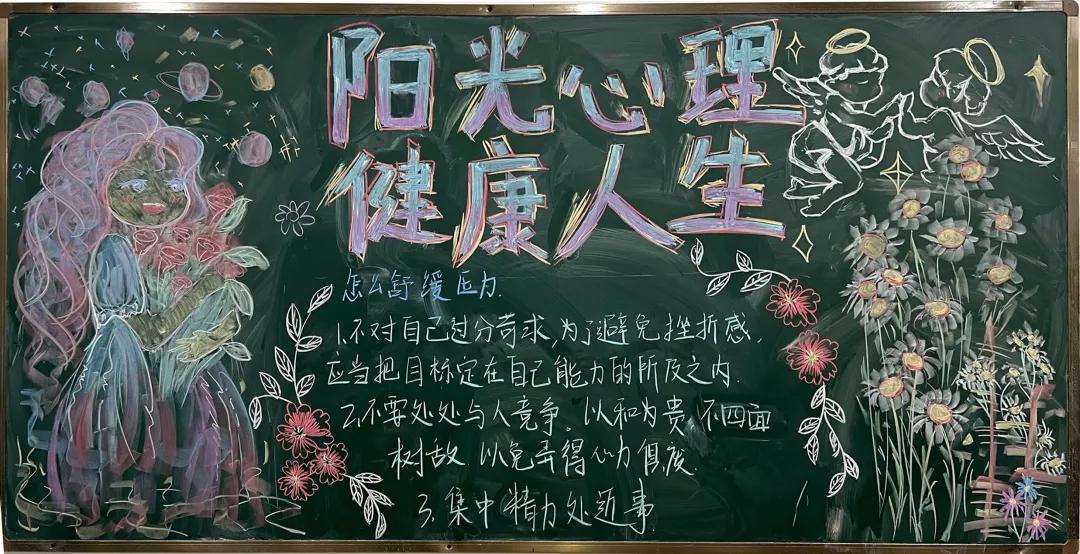 阳光心理
健康人生
怎么舒缓压力.
1.不对自己过分苛求,为了避免挫折感,
应当把目标定在自己能力的所及之内.
2.不要处处与人竞争。以和为贵 不四面
树敌 以免弄得心力俱疲
3.集中精力处近事